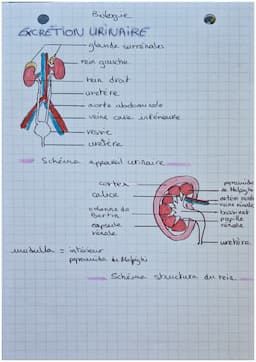 Biologie
EXCRÉTION URINAIRE
glande surrénales
rein gauche
rein droit
uretère
aorte abdominale
veine cave inférieure
vessie
urètre
Schéma appareil urinaire
cortex
calice
colonne de Bertin
capsule rénale
pyramide de Malpighi
artère rénale
veine rénale
bassinet
papille rénale
uretère
medulla = intérieur
pyramide de Malpighi
Schéma structure du rein